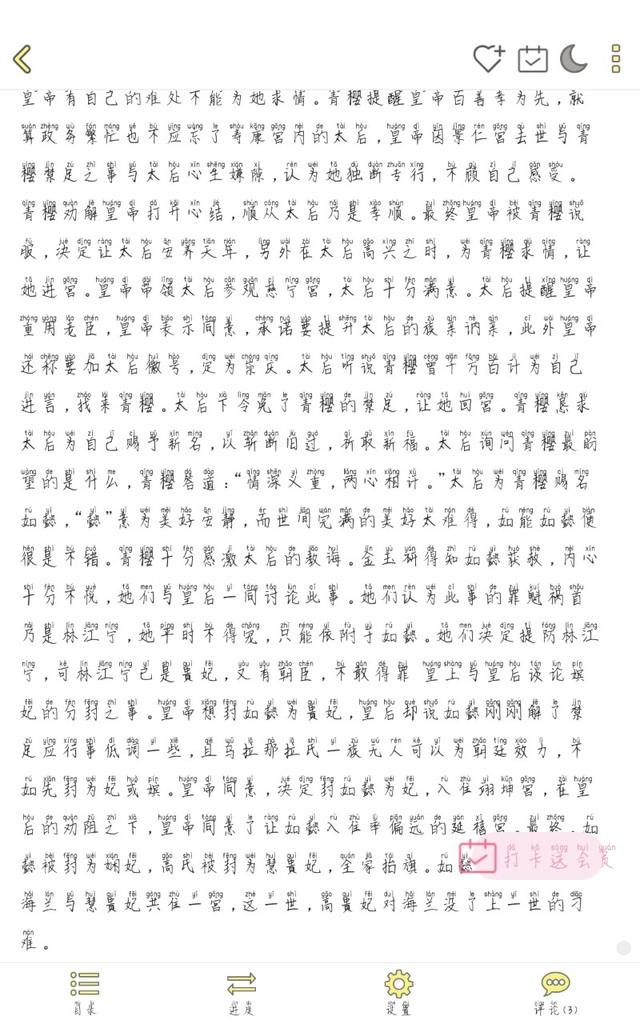 皇帝有自己的难处不能为她求情。青樱提醒皇帝百善孝为先，就
算政务繁忙也不应忘了寿康宫内的太后，皇帝因景仁宫去世与青
樱禁足之事与太后心生嫌隙，认为她独断专行，不顾自己感受。
青樱劝解皇帝打开心结，顺从太后乃是孝顺。最终皇帝被青樱说
服，决定让太后安养天年，另外在太后高兴之时，为青樱求情，让
她进宫。皇帝带领太后参观慈宁宫，太后十分满意。太后提醒皇帝
重用老臣，皇帝表示同意，承诺要提升太后的族亲讷亲，此外皇帝
还称要加太后徽号，定为崇庆。太后听说青樱曾千方百计为自己
进言，找来青樱。太后下令免了青樱的禁足，让她回宫。青樱恳求
太后为自己赐予新名，以斩断旧过，祈取新福。太后询问青樱最盼
望的是什么，青樱答道：“情深义重，两心相计。”太后为青樱赐名
如懿，“懿”意为美好安静，而世间完满的美好太难得，如能如懿便
很是不错。青樱十分感激太后的教诲。金玉妍得知如懿获赦，内心
十分不悦，她们与皇后一同讨论此事。她们认为此事的罪魁祸首
乃是林江宁，她平时不得宠，只能依附于如懿。她们决定提防林江
宁，可林江宁已是贵妃，又有朝臣，不敢得罪 皇上与皇后谈论嫔
妃的分封之事。皇帝想封如懿为贵妃，皇后却说如懿刚刚解了禁
足应行事低调一些，且乌拉那拉氏一族无人可以为朝廷效力，不
如先封为妃或嫔。皇帝同意，决定封如懿为妃，入住翊坤宫，在皇
后的劝阻之下，皇帝同意了让如懿入住更偏远的延禧宫。最终，如
懿被封为娴妃，高氏被封为慧贵妃，全家抬旗。如懿
打卡送会员
海兰与慧贵妃共住一宫，这一世，高贵妃对海兰没了上一世的刁
难。
目录 进度 设置 评论(3)